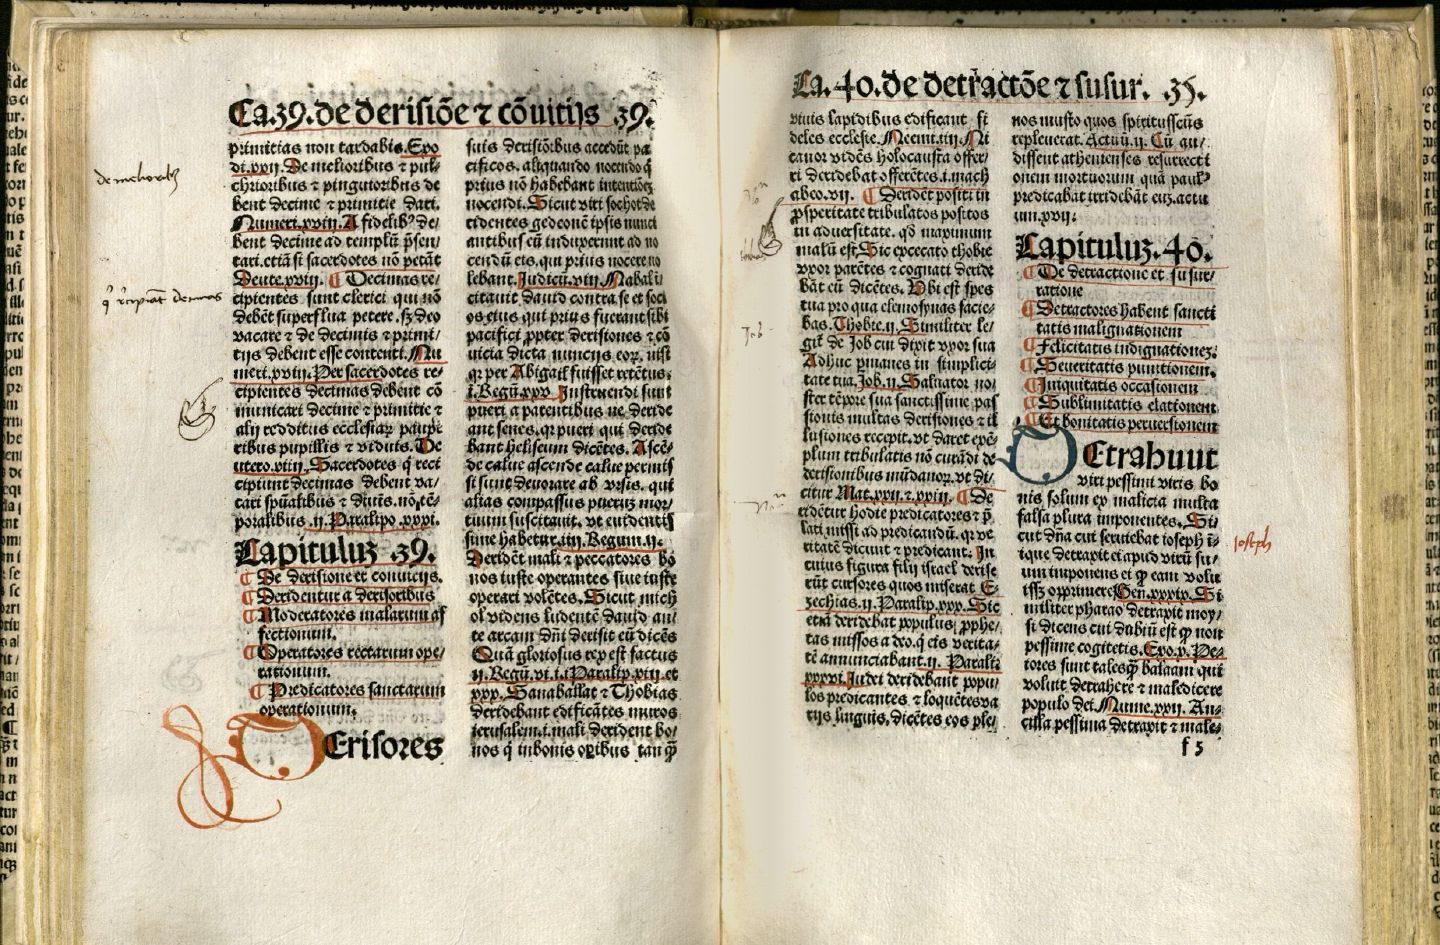 Ca.39.de derisiōe ⁊ cōuitijs 39.
primitias non tardabis. Exo
di.xxij. De melioribus ⁊ pul-
chrioribus ⁊ pinguioribus de
bent decime ⁊ primitie dari.
Numeri.xviij. A fidelibꝰ de-
bent decime ad templū p̄sen-
tari. etiā si sacerdotes nō petāt
Deute.xviij. ¶ Decimas re-
cipientes sunt clerici qui nō
debēt superflua petere. sꝫ deo
vacare ⁊ de decimis ⁊ primi-
tijs debent esse contenti. Nu
meri.xviij. Per sacerdotes re-
cipientes decimas debent cō
municari decime ⁊ primitie ⁊
alij redditus ecclesiaꝝ paupe
ribus pupillis ⁊ viduis. De
utero.xiiij. Sacerdotes q̄ reci
cipiunt decimas debent va-
cari spūalibus ⁊ diuīs. nō tē-
poralibus. ij. Paralipo.xxxi.
Capituluꝫ 39.
¶ De derisione et conuicijs.
¶ Deridentur a derisoribus
¶ Moderatores malarum af
fectionum.
¶ Operatores rectarum ope-
rationum.
¶ Predicatores sanctarum
operationum.
DErisores
suis derisiōibus accedūt pa
cificos. aliquando nocendo q̄
prius nō habebant intentiōeꝫ
nocendi. Sicut viri sochot de
ridentes gedeonē ipsis nunci
antibus eū induxerunt ad no
cendū eis. qui prius nocere no
lebant. Judicū.viij. Nabal ī
citauit dauid contra se et soci
os eius qui prius fuerant sibi
pacifici propter derisiones ⁊ cō
uicia dicta nuncijs eoꝝ. nisi
qꝛ per Abigail fuisset retētus.
i. Regū.xxv. Instruendi sunt
pueri a parentibus ne deride
ant senes. qꝛ pueri qui deride
bant heliseum dicētes. Ascē-
de calue ascende calue permis
si sunt deuorare ab vrsis. qui
alias compassus pueruꝫ mor-
tuum suscitauit. vt euidentis
sime habetur. iiij. Regum.ij.
Deridēt mali ⁊ peccatores bo
nos iuste operantes siue iuste
operari volētes. Sicut mich
ol videns ludentē dauid an-
te arcam dn̄i derisit eū dicēs
Quā gloriosus rex est factus
ij. Regū.vi. i. Paralip.xiij. et
xxx. Sanaballat ⁊ Thobias
deridebant edificātes muros
ierusalem. i. mali derident bo-
nos q̄ in bonis oꝑibus tanꝙ̄
de meliorib
Ca. 40. de detractōe ⁊ susur. 35.
viuis lapidibus edificant fi
deles ecclesie. Neemi.iiij. Ni
canor vidēs holocausta offer-
ri deridebat offerētes. i. mach
abeo.vij. ¶ Deridēt positi in
ꝓsperitate tribulatos positos
in aduersitate. qd̄ maximum
malū est. Sic excecato thobie
vxor parētes ⁊ cognati deride
bāt eū dicētes. Vbi est spes
tua pro qua elemosynas facie-
bas. Thobie.ij. Similiter le-
git̄ de Job cui dixit vxor sua
Adhuc ꝑmanes in simplici-
tate tua. Job.ij. Saluator no-
ster tēpore sua sanctissime pas
sionis multas derisiones ⁊ il
lusiones recepit. vt daret exē-
plum tribulatis nō curādi de
derisionibus mūdanoꝝ. vt di-
citur Mat.xxij. ⁊ xxvij. ¶ De
ridētur hodie predicatores ⁊ p̄
lati missi ad predicandū. qꝛ ve
ritatē dicunt ⁊ predicant. In
cuius figura filij israel derise
rūt cursores quos miserat E-
zechias. ij. Paralip.xxx. Sic
etiā deridebat populus ꝓphe-
tas missos a deo. q̄ eis verita-
tē annunciabant. ij. Parali:
xxxvi. Judei deridebant popu
los predicantes ⁊ loquētes va
rijs linguis. dicētes eos ple
Job
nos musto quos spiritussctūs
repleuerat. Actuū.ij. Cū au-
dissent athenienses resurrecti
onem mortuorum quā paulꝰ
predicabat irridebāt euꝫ. actu
um.xvij.
Capituluꝫ. 40.
¶ De detractione et susur-
ratione
¶ Detractores habent sancti
tatis malignationem
¶ Felicitatis indignationeꝫ.
¶ Seueritatis punitionem.
¶ Iniquitatis occasionem
¶ Sublimitatis elationem
¶ Et bonitatis peruersionem
DEtrahunt
viri pessimi viris bo
nis solum ex malicia multa
falsa plura imponentes. Si-
cut dn̄a cui seruiebat ioseph in-
ique detraxit ei apud virū su-
um imponens ei ꝙ eam volu
issꝫ opprimere. Gen̄.xxxix. Si
militer pharao detraxit moy-
si dicens cui dubiū est ꝙ non
pessime cogitetis. Exo.x. De-
tores sunt tales ꝙ balaam qui
voluit detrahere ⁊ maledicere
populo dei. Nume.xxij. An-
cilla pessima detraxit ⁊ male-
f 5
ioseph